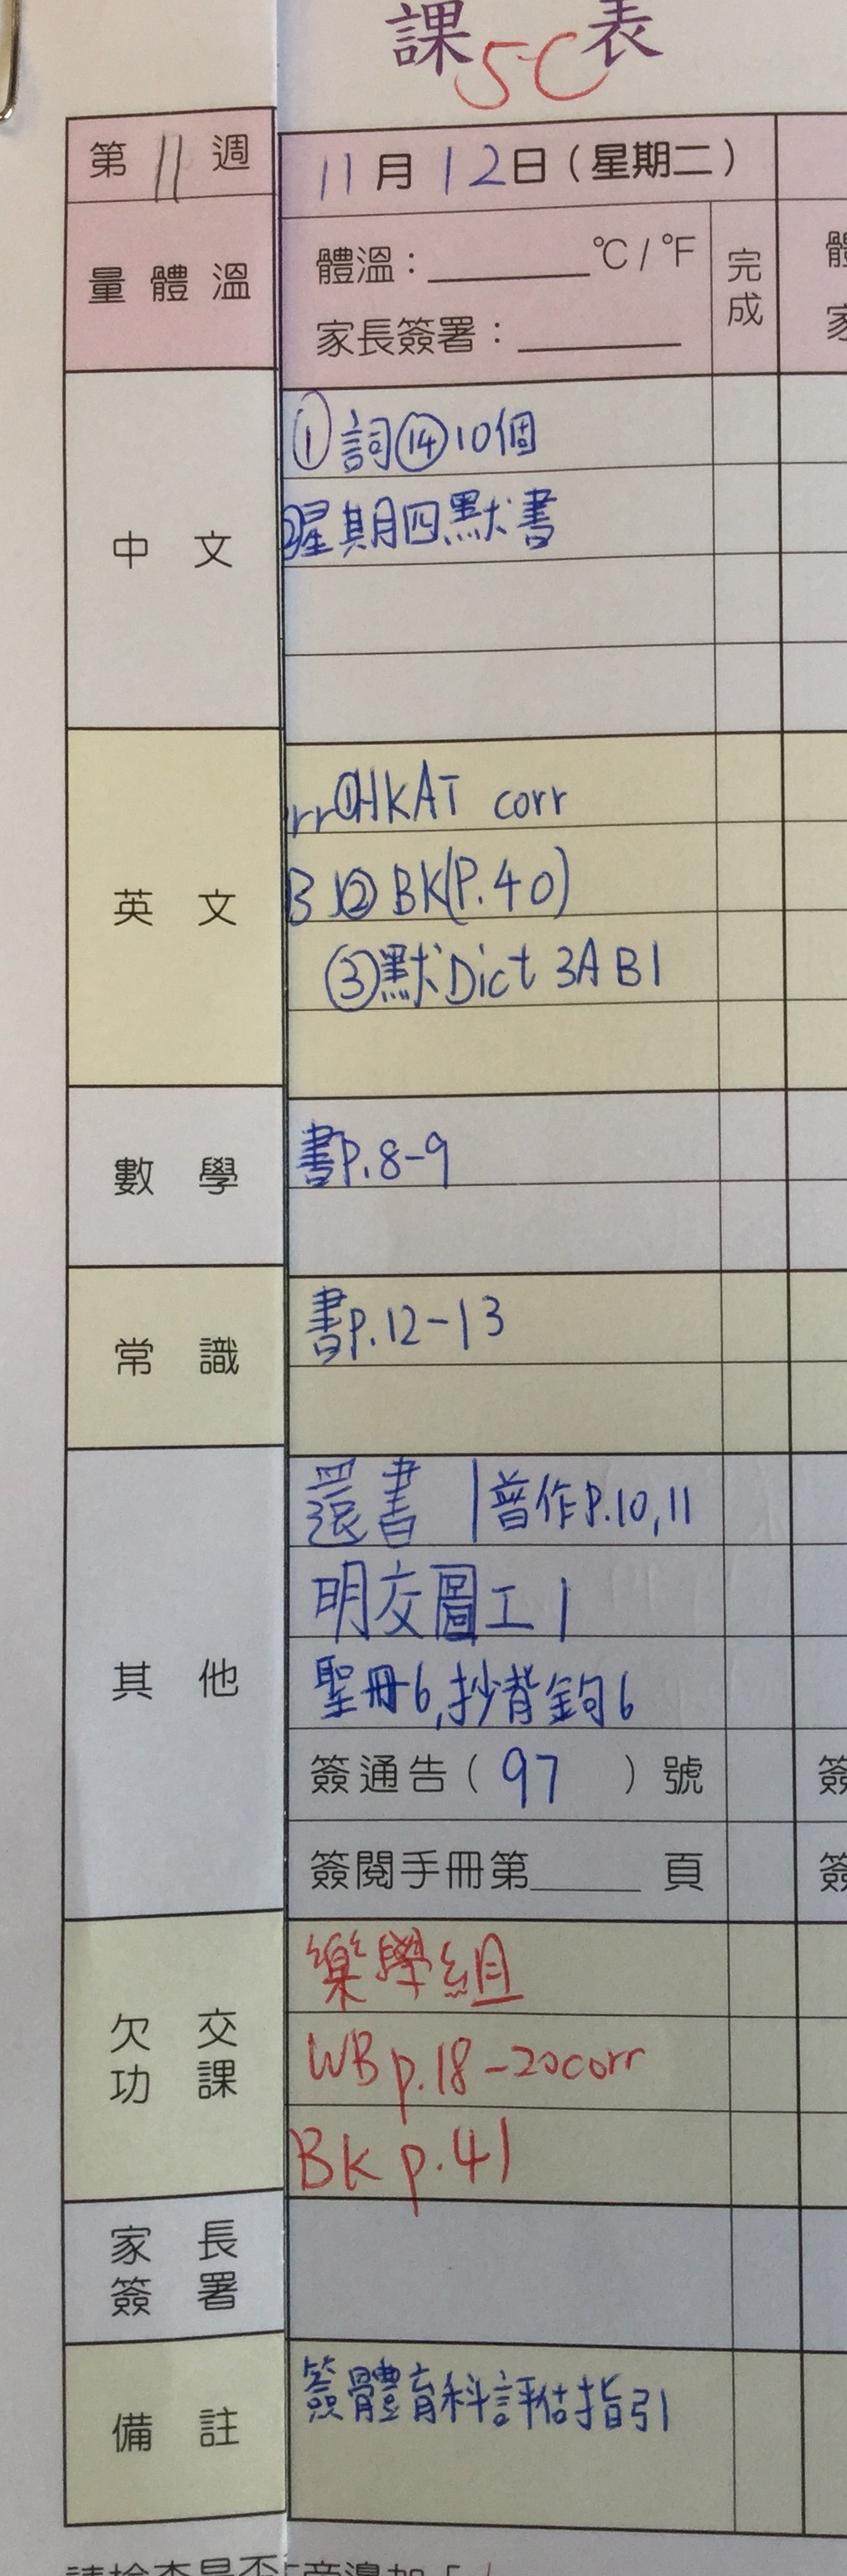 課表
5C
第 11 週
11月12日（星期二）
量體溫
體溫：______℃/℉
完成
家長簽署：______
中文
① 詞⑭10個
②星期四默書
英文
rr①HKAT corr
B ② BK(P.40)
③默Dict 3A B1
數學
書P.8-9
常識
書P.12-13
其他
還書 | 普作P.10,11
明交圖工1
聖冊6,抄背鈎6
簽通告（97 ）號
簽閱手冊第______頁
欠交功課
樂學組
WB p.18-20corr
BK p.41
家長簽署
備註
簽體育科評估指引